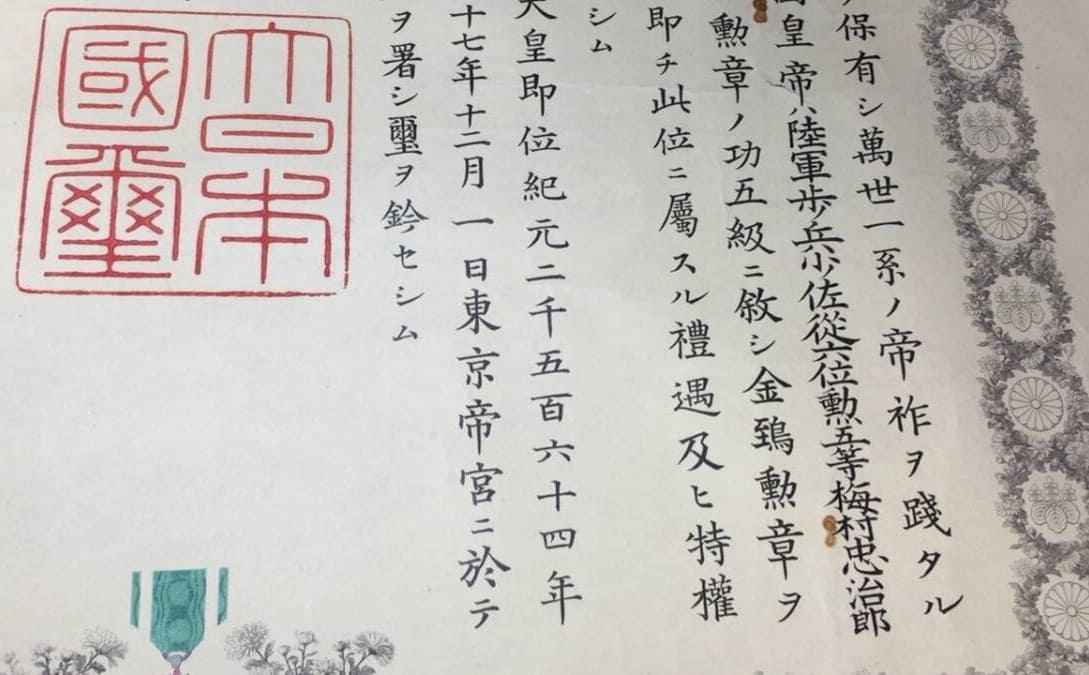 保有シ萬世一系ノ帝祚ヲ踐タル
皇帝ハ陸軍歩兵少佐從六位勲五等梅村忠治郎
勲章ノ功五級ニ敘シ金鵄勲章ヲ
即チ此位ニ屬スル禮遇及ヒ特權
シム
天皇即位紀元二千五百六十四年
十七年十二月一日東京帝宮ニ於テ
ヲ署シ璽ヲ鈐セシム
大日本
國璽